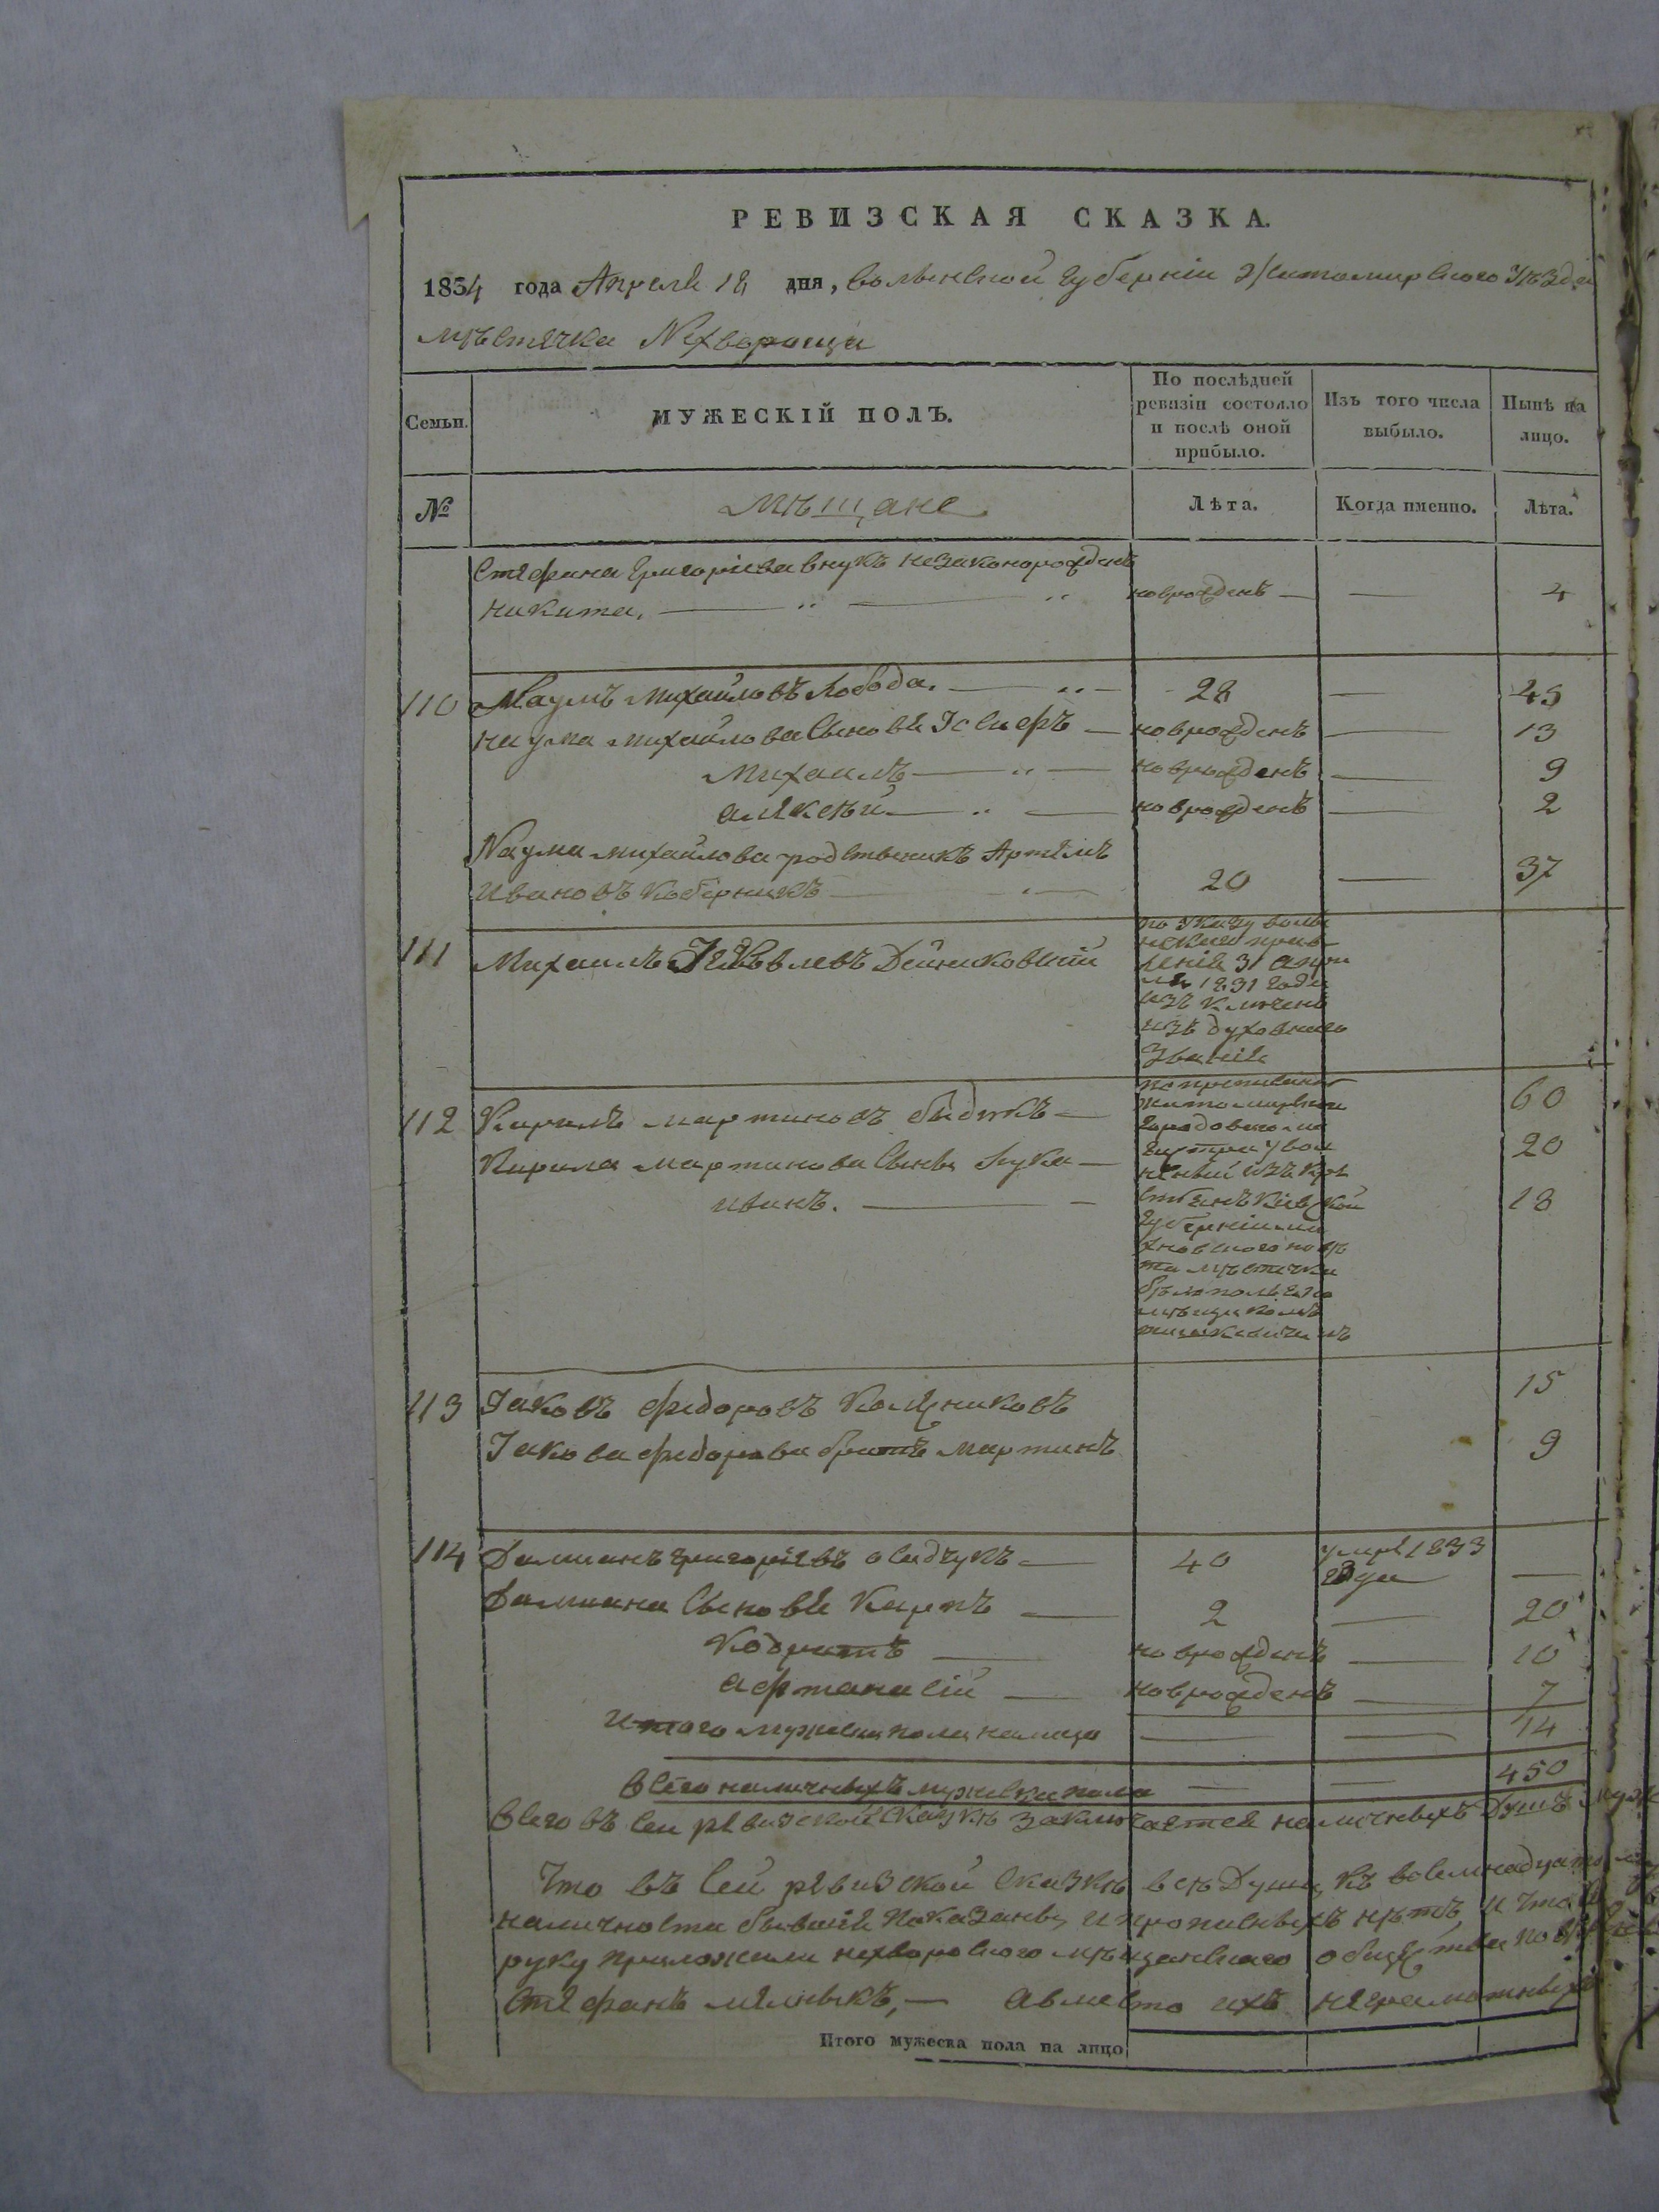 РЕВИЗСКАЯ СКАЗКА.
1834 года Апреля 18 дня, Волынской Губерніи Житомирского Уѣзда
мѣстечка Nехвороща
Семьи. МУЖЕСКІЙ ПОЛЪ. По послѣдней ревизіи состояло и послѣ оной прибыло. Изъ того числа выбыло. Нынѣ на лицо.
№ Мѣщане Лѣта. Когда именно. Лѣта.
Стефана Григоріева внукъ незаконорожденъ
никита. — новрожденъ — — 4
110 Наумъ Михайловъ Лобода. — 28 — 45
наума михайлова Сыновя Іосифъ — новрожденъ — 13
Михаилъ — новрожденъ — 9
алякѣй — новрожденъ — 2
Nаума михайлова родственикъ Артемъ
Ивановъ Коберникъ — 20 — 37
111 Михаилъ Яковлевъ Дейнековскій
по Указу Волы
нскаго прав
ленія 31 апри
ля 1831 года
изъ ключенъ
изъ духовнаго
Званія
112 Кирилъ мартиновъ быдикъ — 60
Кирила мартинова Сынъ Лука — 20
иванъ. — 18
по прописанію
житомирского
городового ма
гистра увол
неный изъ кре
стянъ Кіевской
Губерніи ма
хновского повѣ
та мѣстечка
бѣлополя по
мѣщикомъ
тишкевичемъ
113 Іаковъ федоровъ Колѣсниковъ 15
Іакова федорова братъ мартинъ 9
114 Дамианъ григоріевъ осадчукъ — 40 умре 1833 года —
Дамиана Сыновя Карпъ — 2 — 20
Кодратъ — новрожденъ — 10
афтанасій — новрожденъ — 7
Итого мужеска пола налицо — — 14
всего наличныхъ мужеска пола — — 450
Всего въ сей ревизской Сказкѣ заключается наличныхъ Душъ муж
Что въ Сей ревизской Сказкѣ всѣ Души, къ восемнадцато
наличности бывшія показаны, и прописныхъ нѣтъ, и что
руку приложили нехворовского мѣщанского общества
Стефанъ мелныкъ, — авместо ихъ неграмотныхъ
Итого мужеска пола на лицо